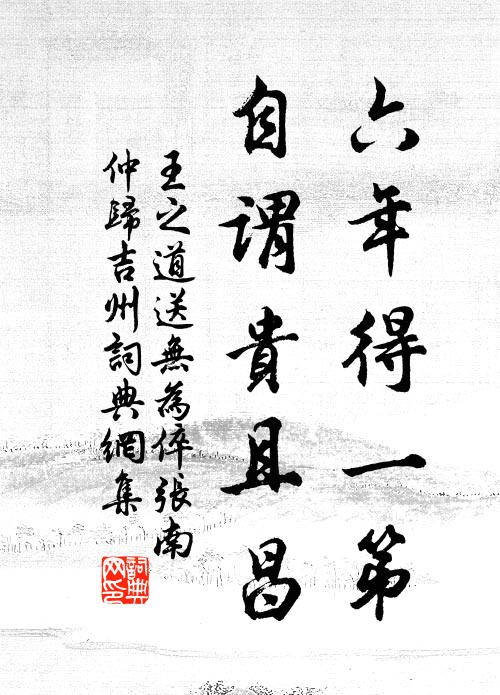 六年得一第
自謂貴且昌
王之道送無為倅張南
仲歸吉州詞典網集
詞典
网印